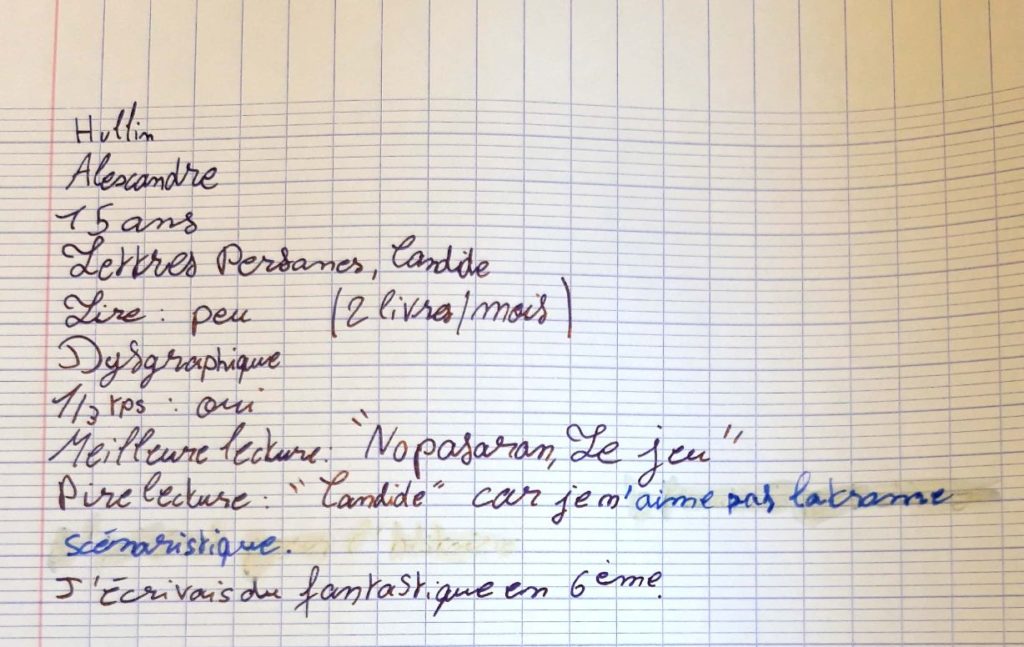 Hullin
Alexandre
15 ans
Lettres Persanes, Candide
Lire : peu (2 livres/mois)
Dysgraphique
1/3 tps : oui
Meilleure lecture : "No pasaran, Le jeu"
Pire lecture : "Candide" car je n'aime pas la trame
scénaristique.
J'écrivais du fantastique en 6ème.